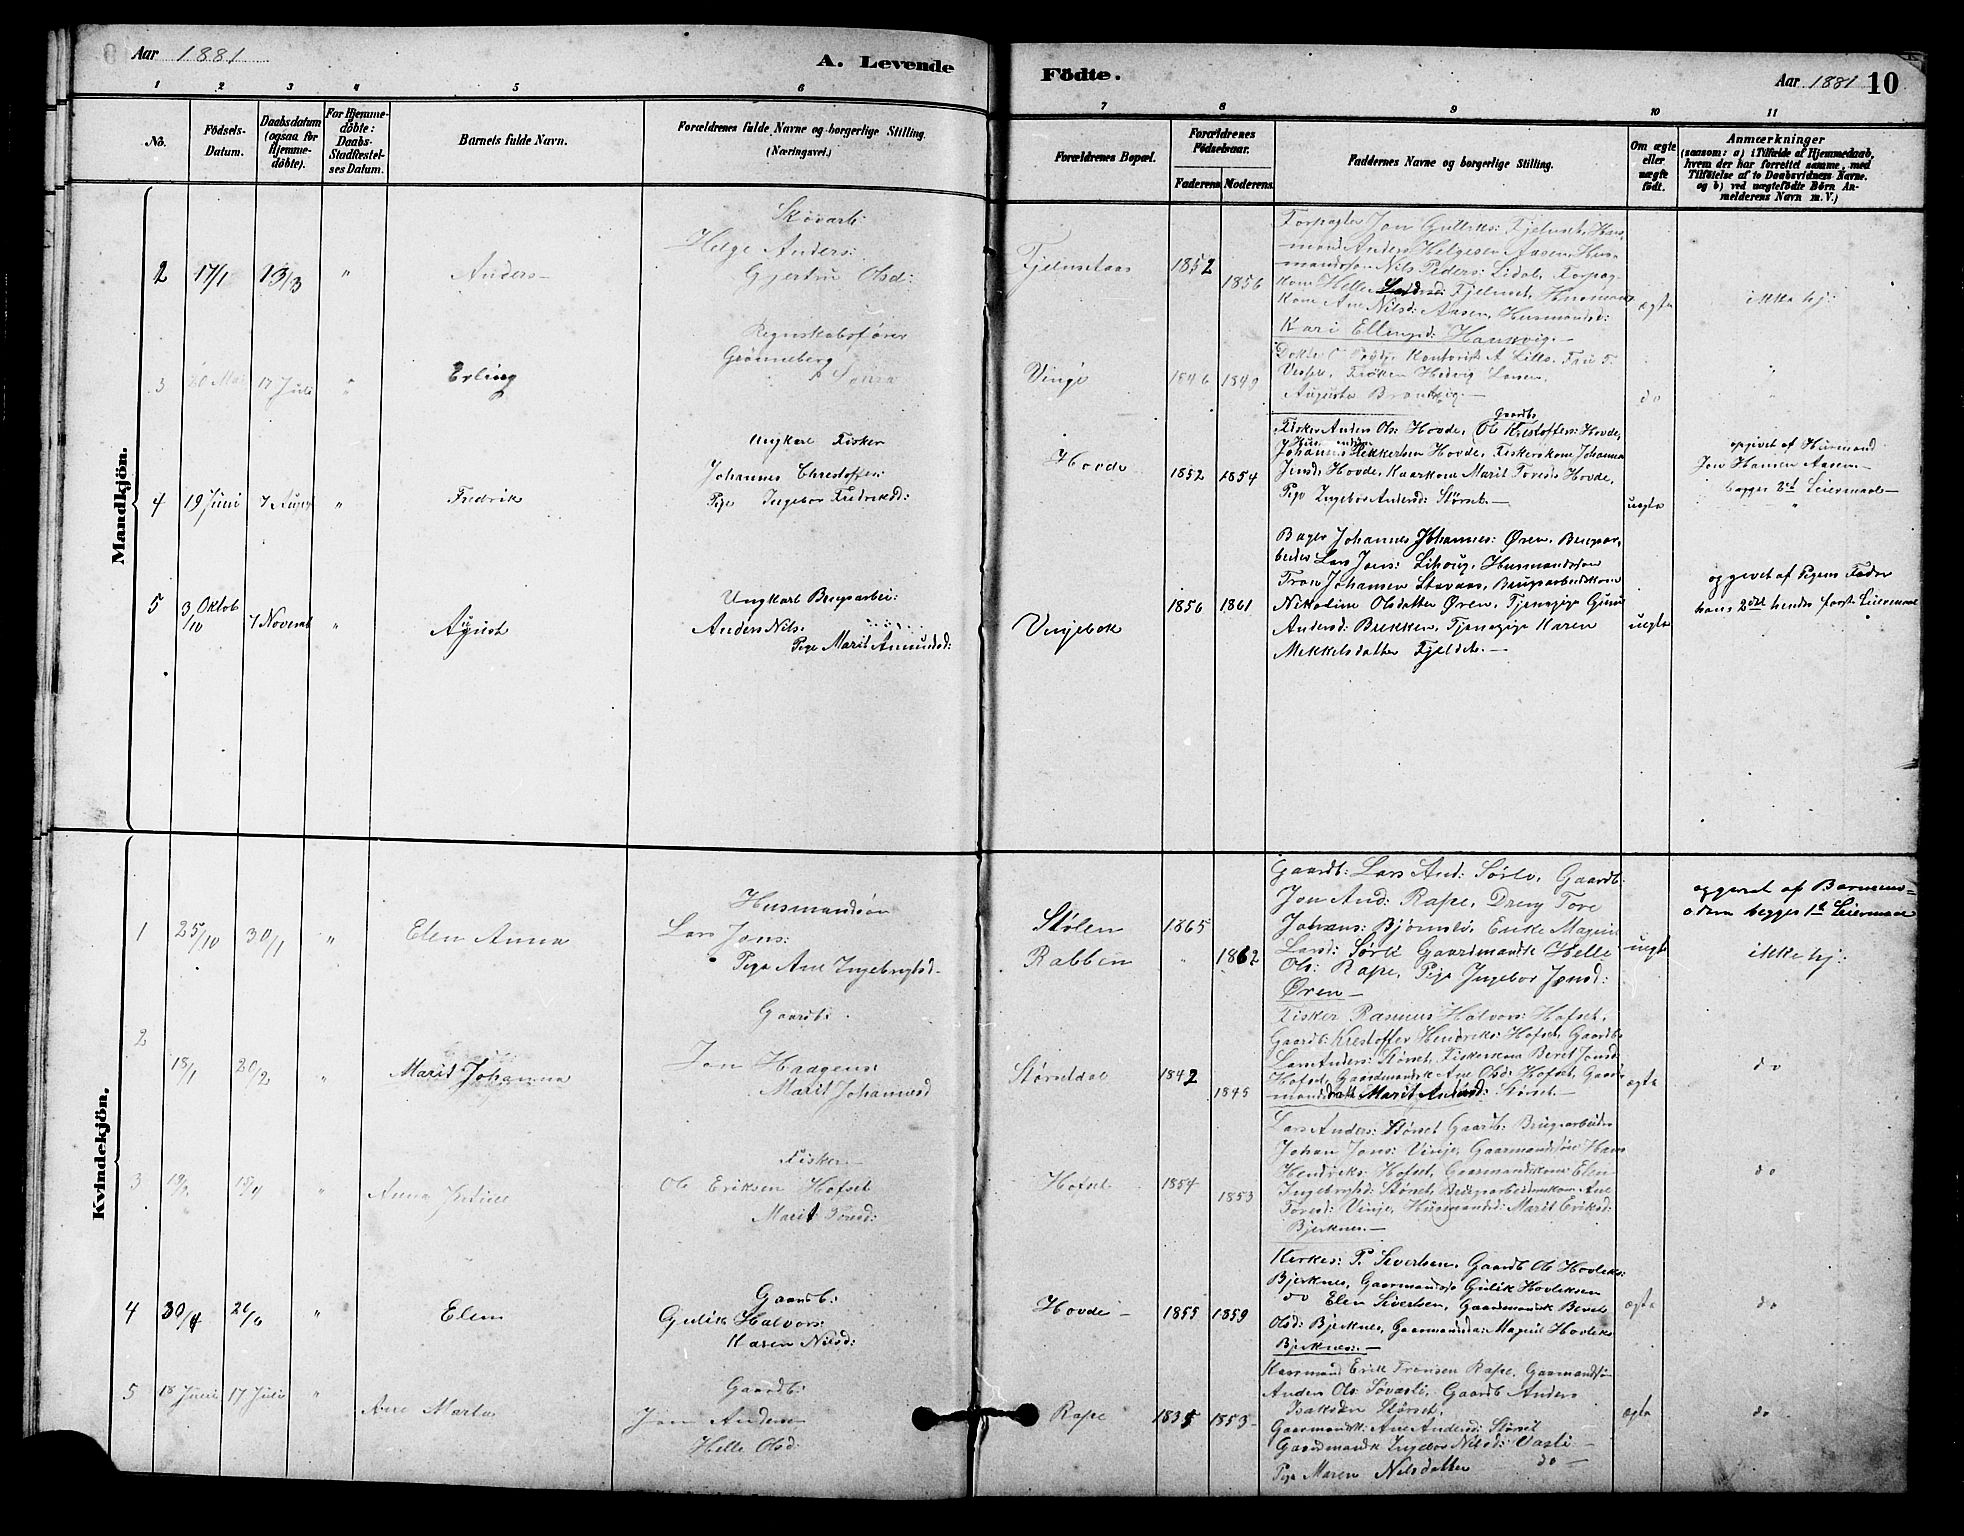 Aar 1881
A. Levende
Födte.
Aar 1881 10
1 2 3 4 5 6 7 8 9 10 11
No.
Födsels-
Datum.
Daabsdatum
(ogsaa for
Hjemme-
døbte).
For Hjemme-
døbte:
Daabs-
Stadfæstel-
ses Datum.
Barnets fulde Navn.
Forældrenes fulde Navne og borgerlige Stilling.
(Næringsvei.)
Forældrenes Bopæl.
Forældrenes
Födselsaar.
Faderens Moderens
Faddernes Navne og borgerlige Stilling.
Om ægte
eller
uægte
födt.
Anmærkninger
(saasom: a) i Tilfælde af Hjemmedaab,
hvem der har forrettet samme, med
Tilföielse af to Daabsvidners Navne.
og b) ved uægtefödte Börn An-
melderens Navn m. V.)
Mandkjön.
2 17/1 13/3 " Anders
Helge Anders:
Gjertru Olsd:
1852
1856
Forpagter Jon Gulliks: Fjelnset, Hus-
mand Anders Helgesen Aasen, Hus-
mandssøn Nils Peders: Lidal, Forpag-
kone Ane Nilsd: Aasen, Husmandsd:
Kari Ellingsd:
ægte
ikke hj:
3 17 Juli " Erling
Regnskabsfører
Grønneberg
Vinge
1846 1849
Augusta
do
"
4 19 Juni 7 August " Fredrik
Ungkarl Fisker
Johannes Chrestoffers:
Pige Ingebor Fredriksd:
Hovde
1852 1854
Fisker Anders Ols: Hovde, Gaardb Ole Krestoffers: Hovde,
Johannes Mekkelsen Hovde, Fiskerkone Johanna
Jensd: Hovde, Kaarkone Marit Toresd: Hovde,
Pige Ingebor Andersd: Størset.
uægte
opgivet af Husmand
Jon Hansen Aasen
begges 2det Leiermaal
5 3/10 Oktob 7 Novemb " August
Ungkarl Brugsarbei:
Anders Nils:
Pige Marit Amundsd:
Vinjebok
1856 1861
Bager Johannes Johannes: Øren, Brugsar-
beider Lars Jons: Lihoug, Husmandssøn
Tron Johansen Stavaas, Brugsarbeiderkone
Nikoline Olsdatter Øren, Tjenepige Guru
Andersd: Brekken, Tjenepige Karen
Mekkelsdatter Fjeldet.
uegte
opgevet af Pigens Fader
hans 2det hendes først Leiermaal
Kvindekjön.
1 25/10 30/1 " Elen Anna
Husmandsøn
Lars Jons:
Pige Ane Ingebrigtsd.
Stølen
Rabben
1865
" 1862
Gaardb: Lars And: Sørlv, Gaardb:
Jon And: Rape, Dreng Tore
Johans: Bjørnslv, Enke Magnil
Larsd: Sørli Gaardmandsk Helle
Ols: Rape, Pige Ingebor Jonsd:
Øren
uegte
opgevet af Barnemo-
deren begges 1st Leiermaal
ikke hj:
2 18/1 20/2 " Marit Johanna
Gaardb:
Jon Haagens:
Marit Johannesd
Størsetdal
1842
1845
Fisker Rasmus Halvors: Hofset,
Gaardb: Krestoffer Hendriks: Hofset, Gaardb:
Lars Anders: Størset, Fiskerkone Beret Jonsd:
Hofset, Gaardmandsk Ane Olsd: Hofset, Gaard-
mandsdatt Marit Andersd: Størset
ægte
do
3 " Anna
Fisker
Ole Eriksen Hofset
Marit Jonsd:
Hofset
1854
1853
Lars Anders: Størset Gaardb: Brugsarbeider
Johan Jons: Vinje, Gaarmandssøn Hans
Hendriks: Hofset, Gaarmandskone Elen
Ingebrigtsd: Størset, Brugsarbeiderkone Ane
Toresd: Vinje, Husmandsd: Marit Eriksd:
Bjerknes.
do
4 30/4 26/6 " Elen
Gaardb:
Gulik Halvors:
Karen Nilsd:
Hovde
1855 1859
Kirkes: P. Sivertsen, Gaardb Ole Hovleks:
Bjerknes, Gaarmandsø Gulik Hovleksen
do Elen Sivertsen, Gaardmandsk Beret
Olsd: Bjerknes, Gaarmandsd: Magnil Hovleks
Bjerknes.
ægte
do
5 18 Juni 17 Juli " Ane Marta
Gaardb:
Jon Anders
Helle Olsd
Rape
1835 1853
Kaarmand Erik Tronsen Rape, Gaarmandsøn
Anders Ols: Søvasli, Gaardb Anders
Isaksen Størset,
Gaarmandsk: Ane Andersd: Størset
Gaardmandsk Ingebor Nilsd: Vasli
Pige Maren Nilsdatter do
ægte
do